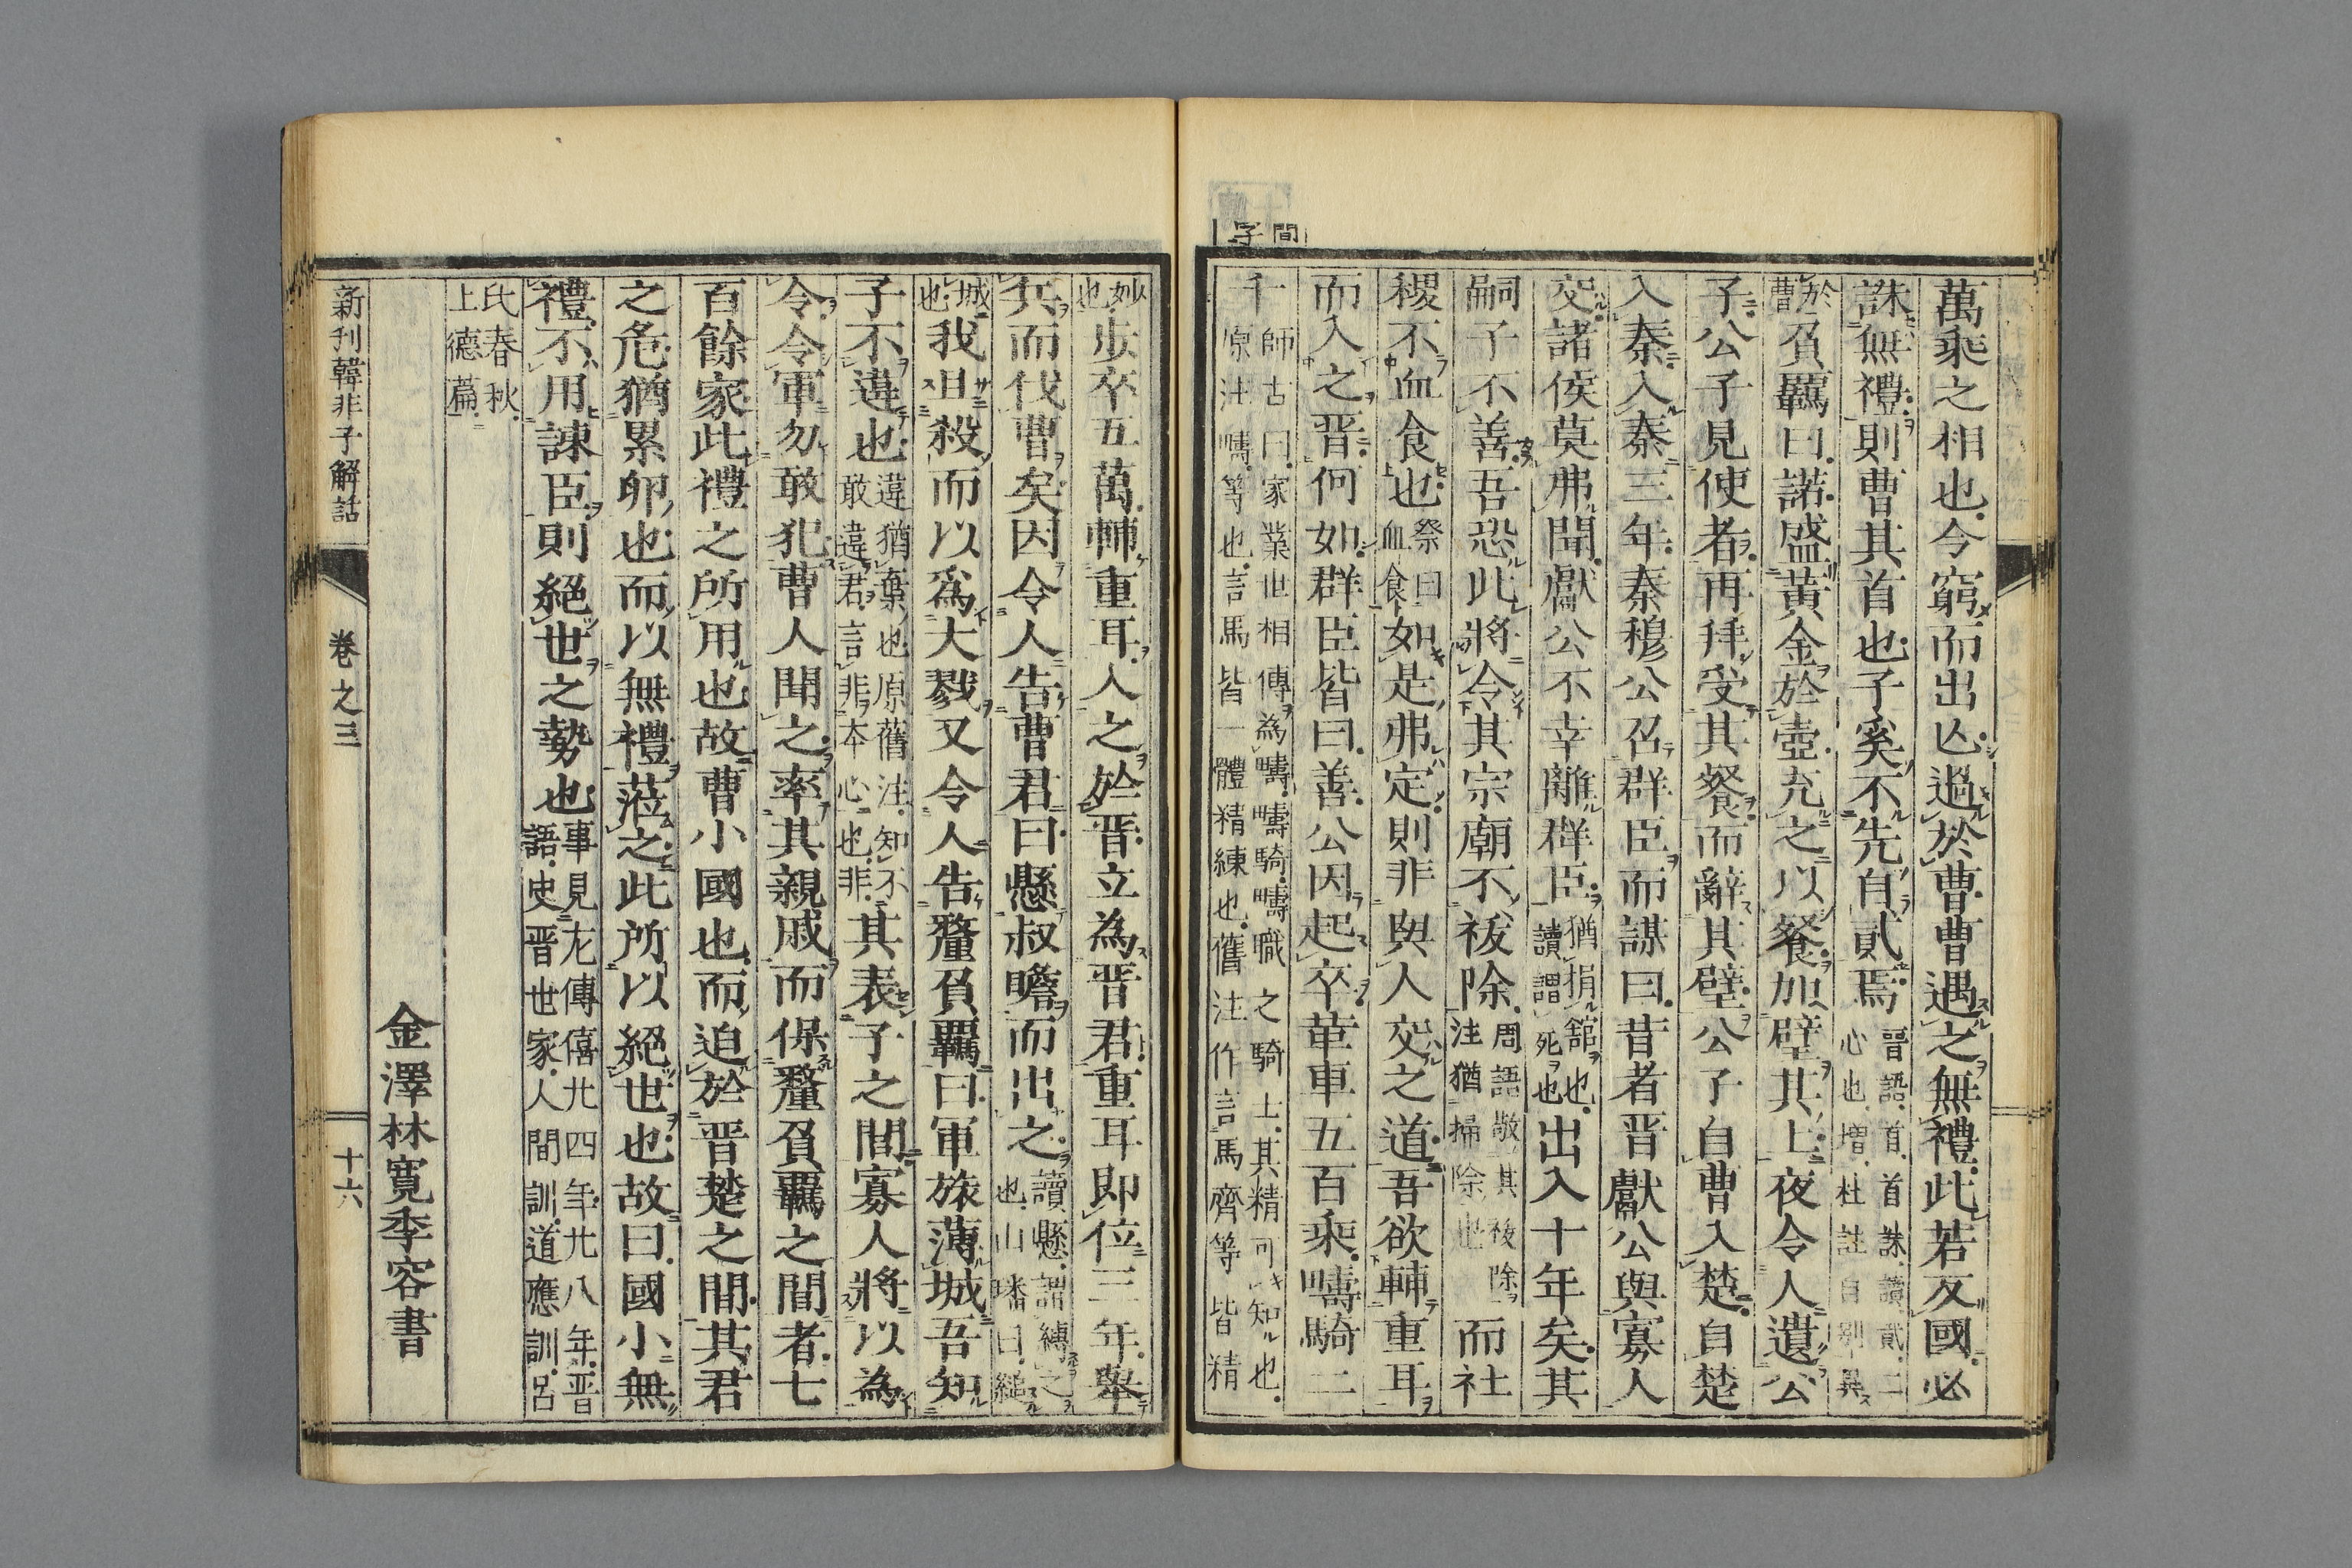 萬乘之相也今窮而出亾過於曹曹遇之無禮此若反國必
誅無禮則曹其首也子奚不先自貳焉晉語首首誅讀貳二心也增杜註自別異
於曹負羈曰諾盛黃金於壺充之以餐加璧其上夜令人遺公
子公子見使者再拜受其餐而辭其璧公子自曹入楚自楚
入秦入秦三年秦穆公召群臣而謀曰昔者晉獻公與寡人
交諸侯莫弗聞獻公不幸離群臣猶捐舘也讀謂死也出入十年矣其
嗣子不善吾恐此將令其宗廟不祓除周語敬其祓除注猶掃除也而社
稷不血食也祭曰血食如是弗定則非與人交之道吾欲輔重耳
而入之晉何如群臣皆曰善公因起卒革車五百乘疇騎二
千師古曰家業世相傳為疇疇騎疇職之騎士其精可知也原注疇等也言馬皆一體精練也舊注作言馬齊等皆精
間
子
妙也步卒五萬輔重耳入之於晉立為晉君重耳即位三年舉
兵而伐曹矣因令人告曹君曰懸叔瞻而出之讀懸謂縛之也山璠曰縋
城也我且殺而以爲大戮又令人告釐負羈曰軍旅薄城吾知
子不違也違猶棄也原舊注知不敢違君言非本心也非其表子之閭寡人將以為
令令軍勿敢犯曹人聞之率其親戚而保釐負羈之閭者七
百餘家此禮之所用也故曹小國也而迫於晉楚之間其君
之危猶累卵也而以無禮蒞之此所以絕世也故曰國小無
禮不用諫臣則絕世之勢也事見左傳僖廿四年廿八年晉語史晉世家人間訓道應訓呂
氏春秋上德篇
金澤林寬季容書
新刊韓非子解詁
卷之三
十六